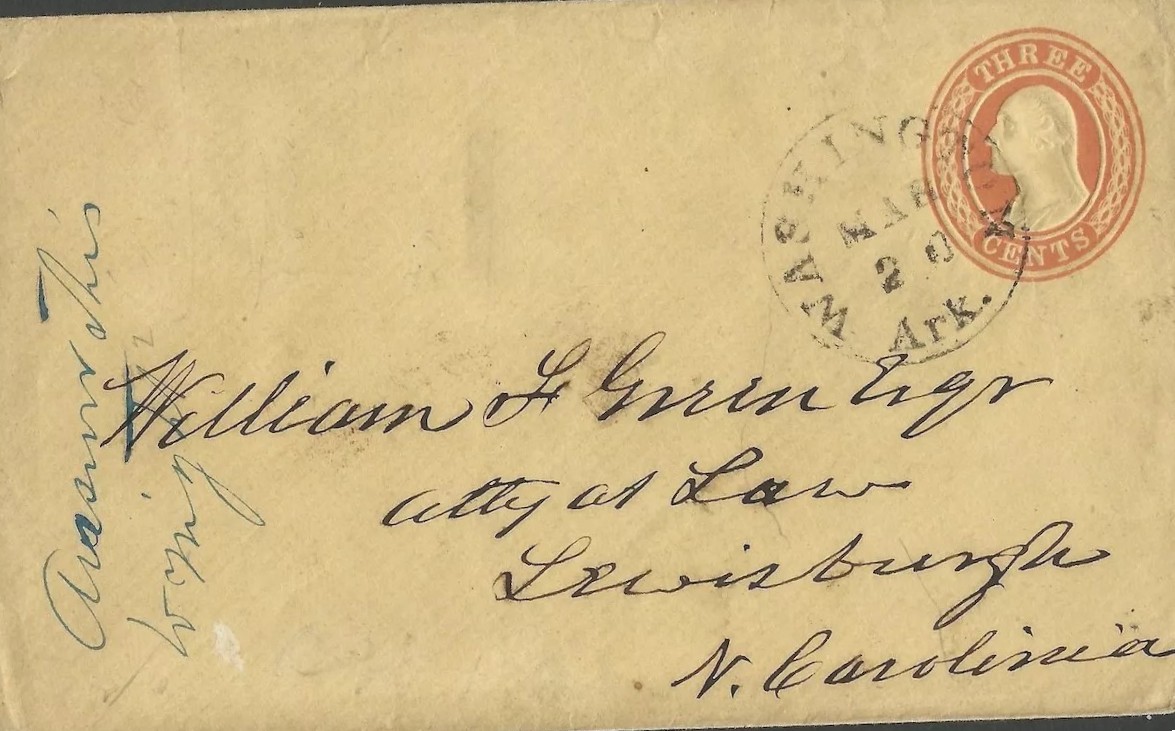 THREE
CENTS
WASHINGTON
MAR
20
Ark.
William F Green Esqr
atty at Law
Lewisburgh
N. Carolinia
this